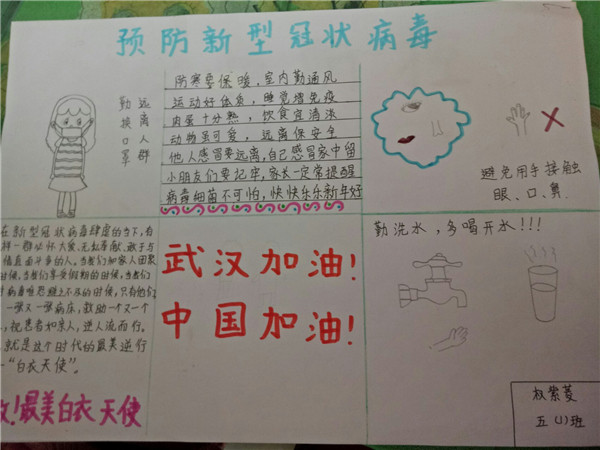 预防新型冠状病毒
勤换口罩
远离人群
防寒要保暖,室内勤通风
运动好体质,睡觉增免疫
肉蛋十分熟,饮食宜清淡
动物虽可爱,远离保安全
他人感冒要远离,自己感冒家中留
小朋友们要记牢,家长一定常提醒
病毒细菌不可怕,快快乐乐新年好
避免用手接触
眼、口、鼻
在新型冠状病毒肆虐的当下,有
样一群心怀大爱、无私奉献、敢于与
情直面斗争的人。当我们和家人团聚
时候,当我们享受假期的时候,当我们
病毒唯恐避之不及的时候,只有他们
一张又一张病床,救助一个又一个
,视患者如亲人,逆人流而行。
就是这个时代的最美逆行
“白衣天使”。
!最美白衣天使
武汉加油!
中国加油!
勤洗水,多喝开水!!!
权紫菱
五(1)班